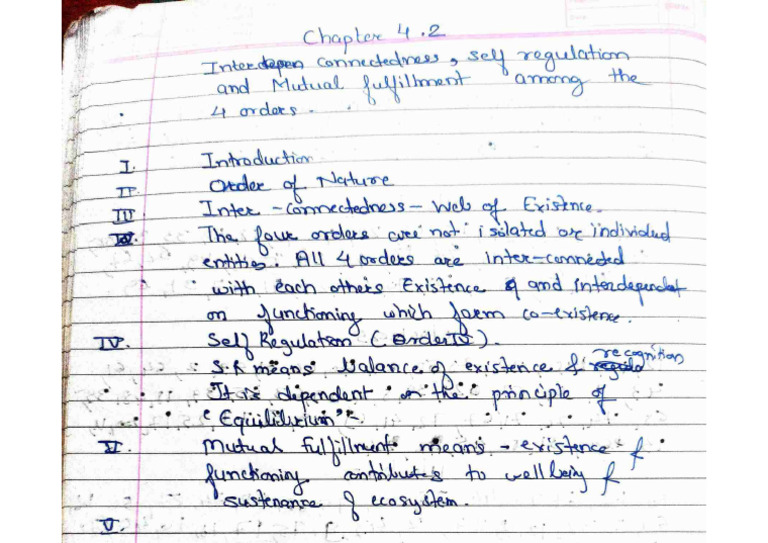 Chapter 4.2
Inter connectedness, self regulation
and Mutual fulfillment among the
4 orders.
I. Introduction
II. Order of Nature
III Inter-connectedness - Web of Existence.
The four orders are not isolated or individual
entities. All 4 orders are inter-conneded
with each others Existence and interdependent
on functioning which form co-existence.
IV. Self Regulation (Order IV).
S.R means balance of existence & recognition
It is dipendent on the principle of
"Equilibrium"
V. Mutual fulfillment means - existence &
functioning contributes to well being &
sustenance of ecosystem.
V.